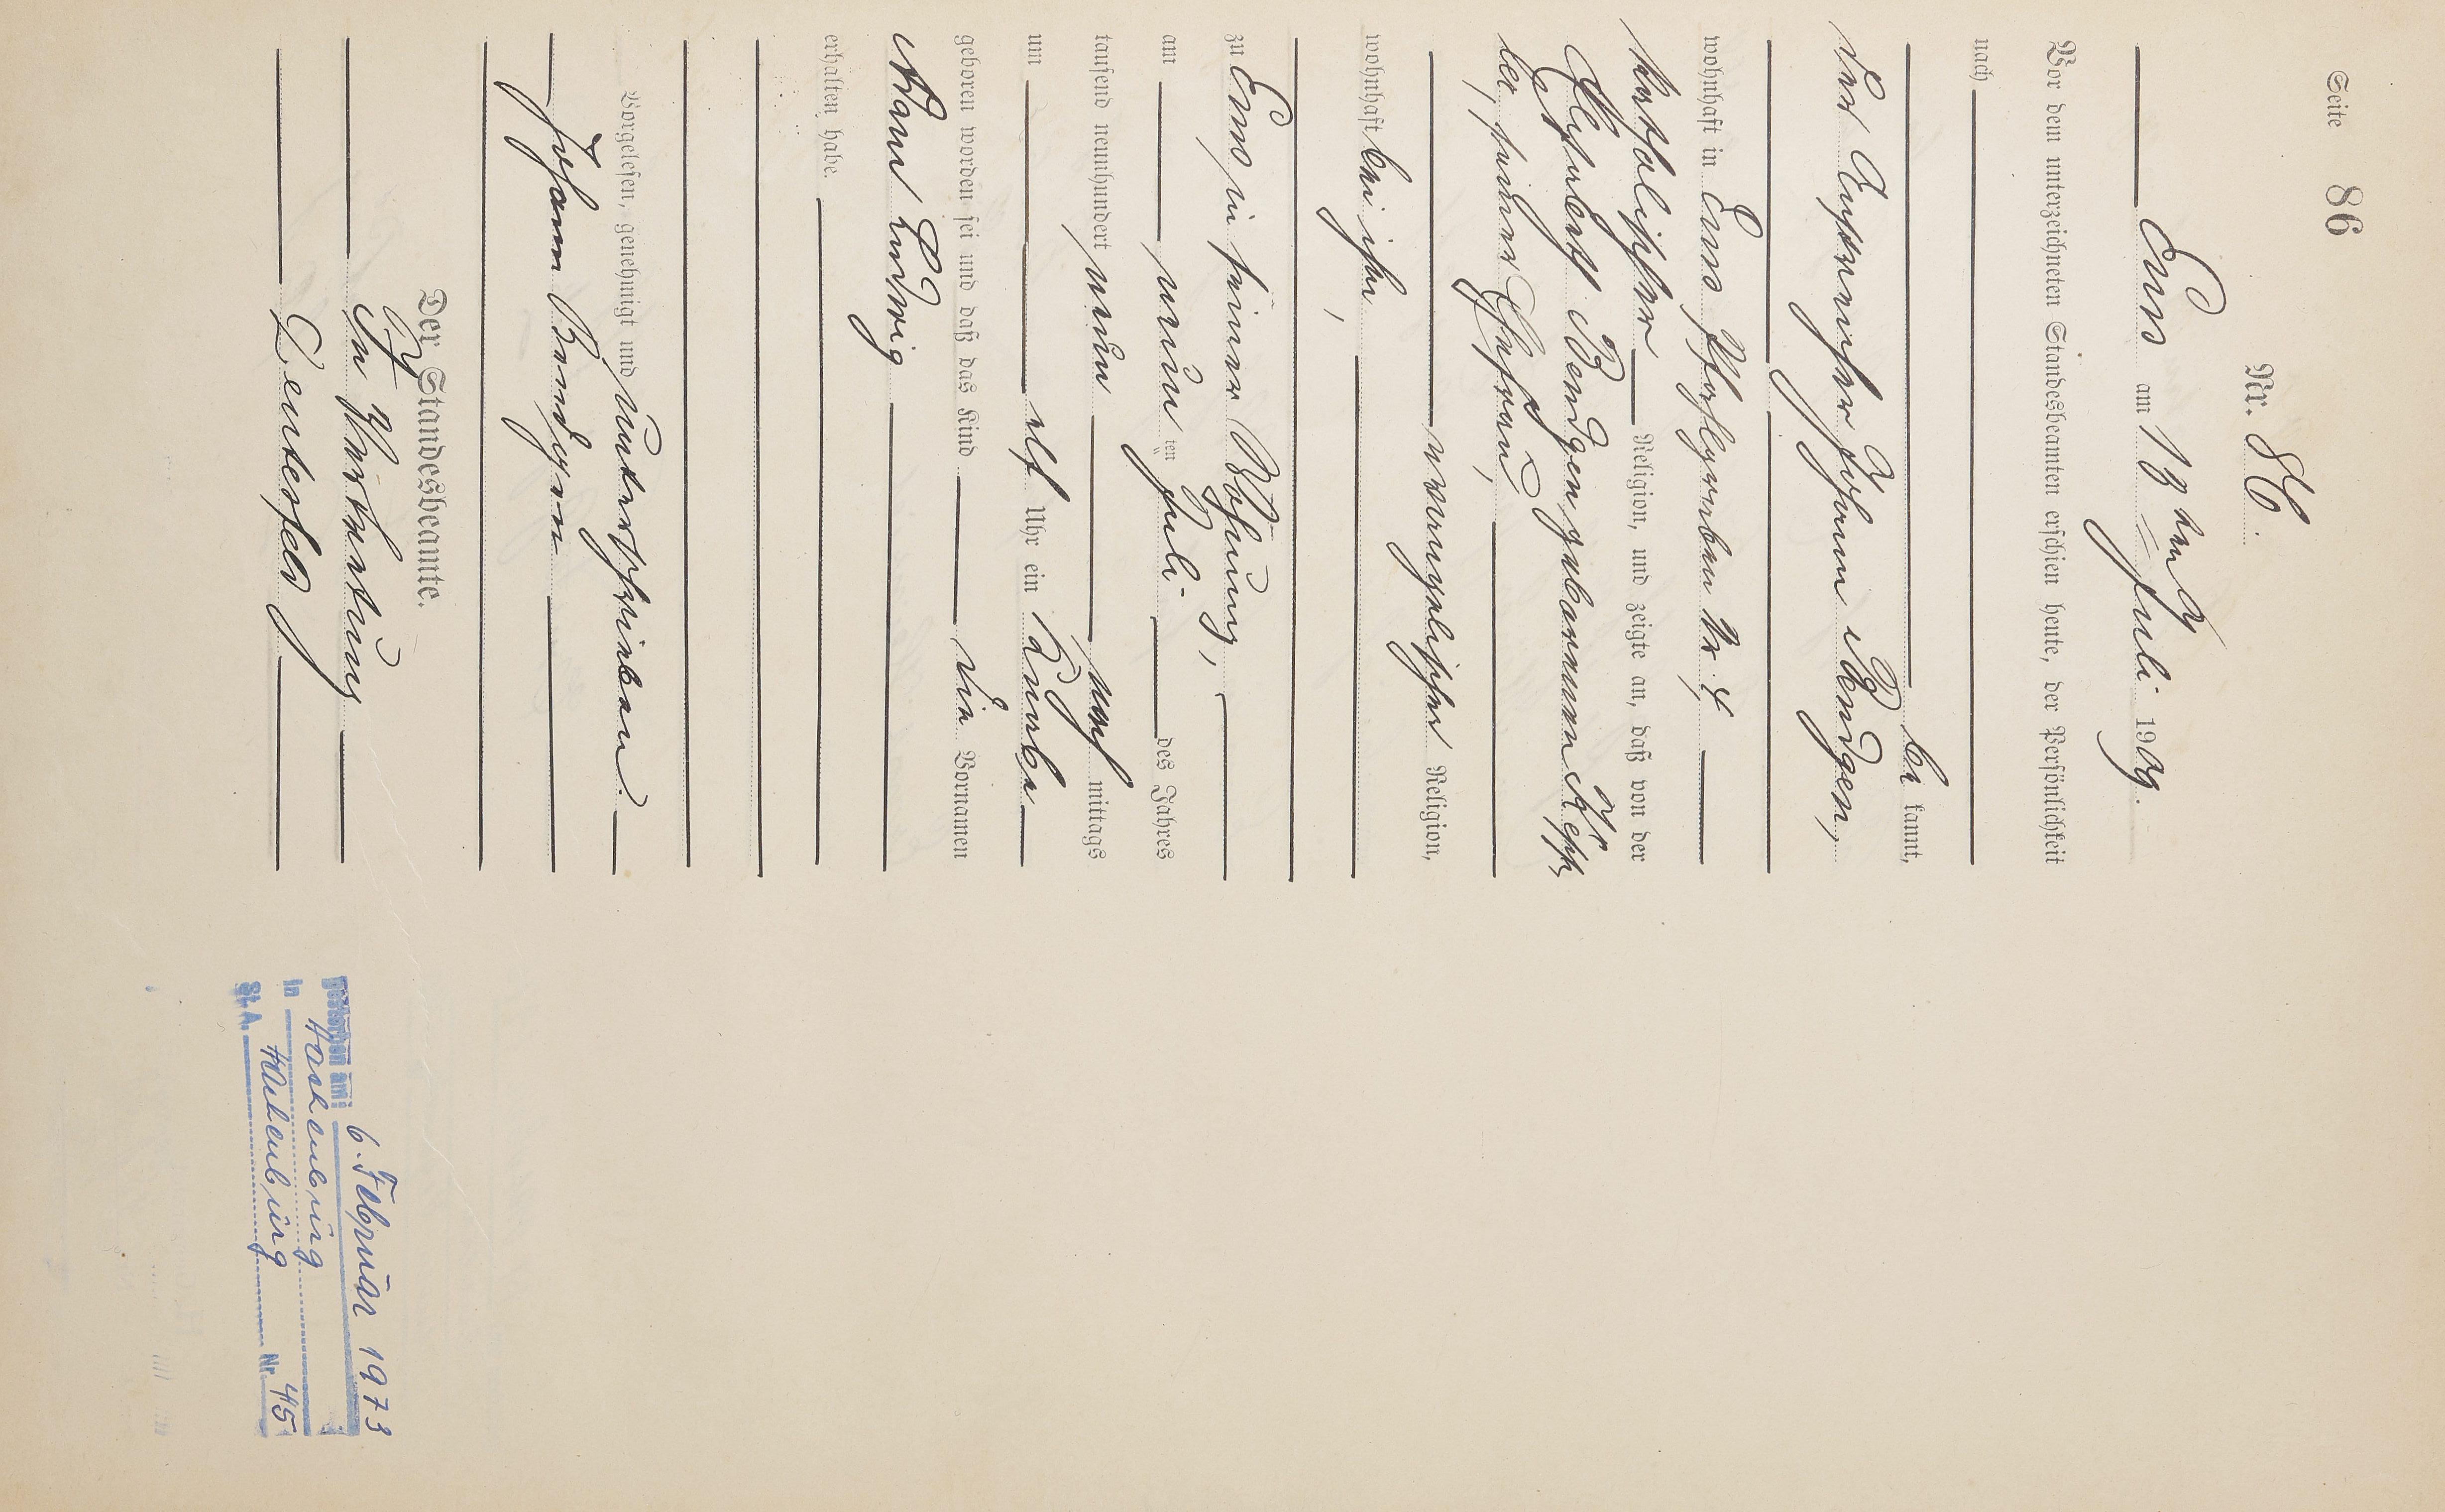 Seite 86
Nr. 86.
Ems am 13ten Juli 1909.
Vor dem unterzeichneten Standesbeamten erschien heute, der Persönlichkeit
nach
be kannt,
der Anstreicher Johann Bendgen,
wohnhaft in Ems Pfahlgraben Nr. 4
katholischer Religion, und zeigte an, daß von der
Bendgen geborenen
ler, seiner Ehefrau,
evangelischer Religion,
wohnhaft bei ihm,
zu Ems in seiner Wohnung,
am neun ten Juli des Jahres
tausend neunhundert neun vor mittags
um elf Uhr ein Knabe
geboren worden sei und daß das Kind die Vornamen
Karl Ludwig
erhalten habe.
Vorgelesen, genehmigt und unterschrieben
Johann Bendgen
Der Standesbeamte.
In Vertretung
6. Februar 1973
in Hachenburg
St.A. Hachenburg Nr. 45